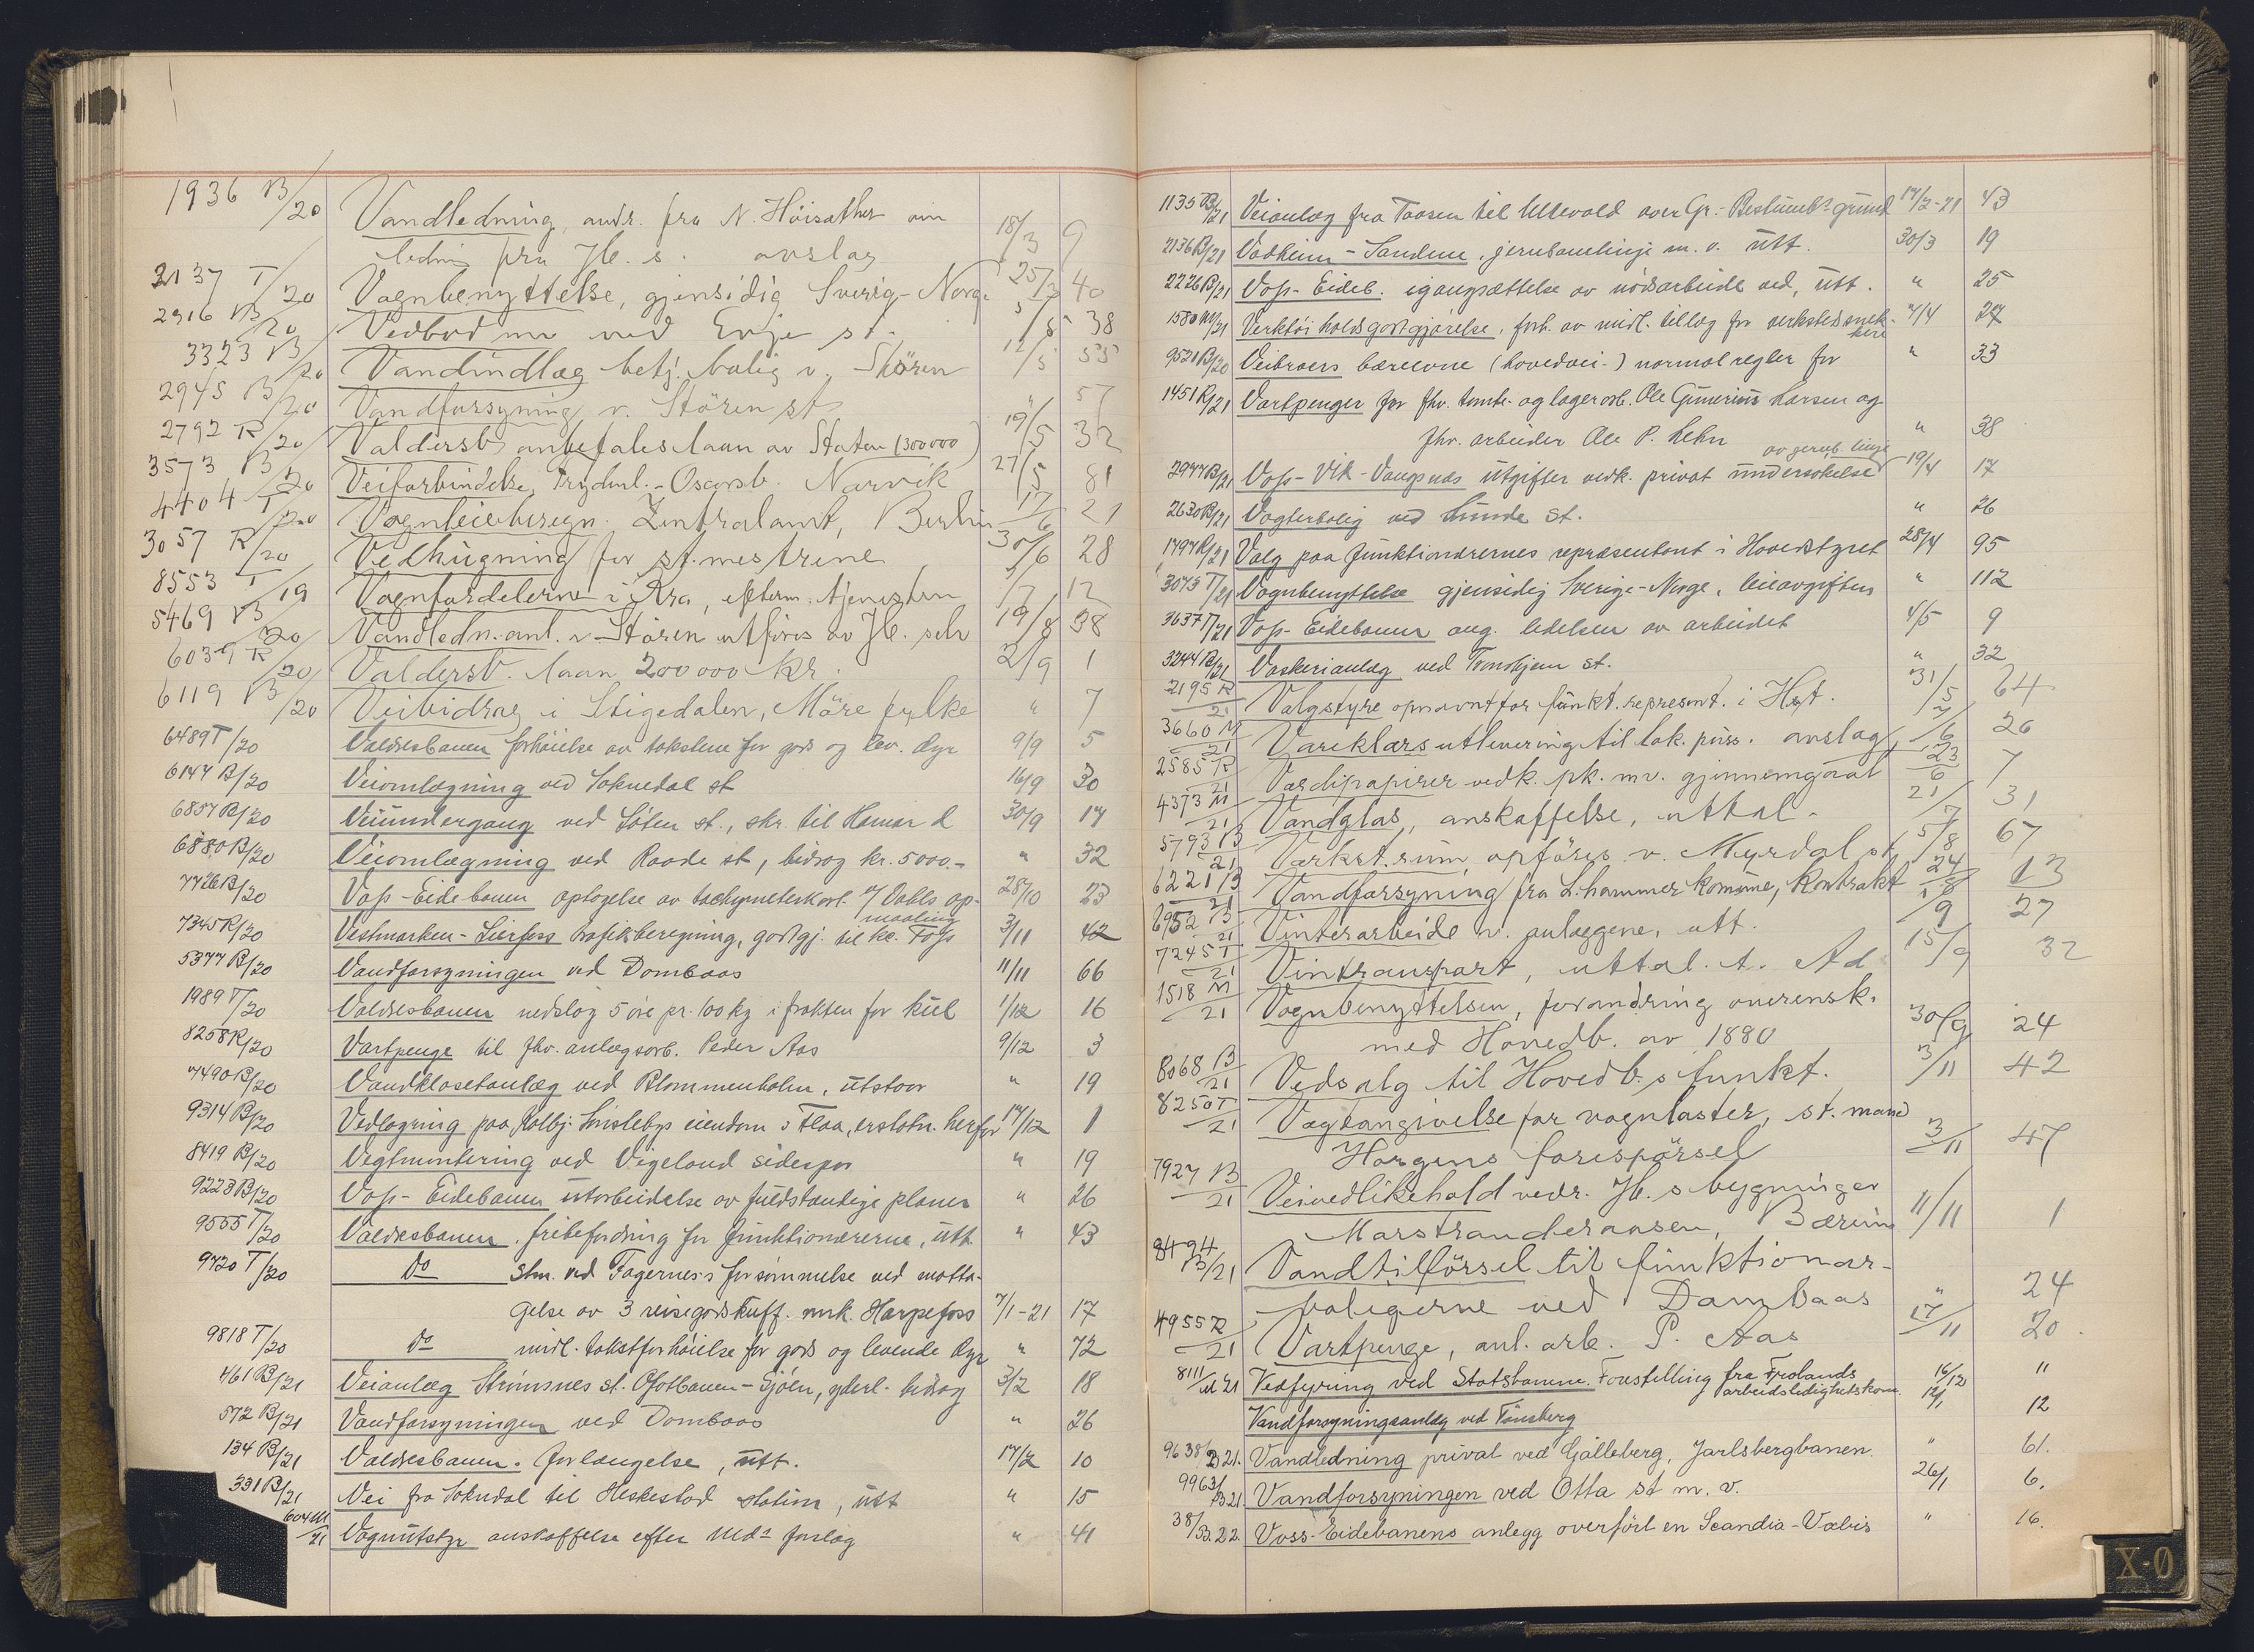 1936 B/20 Vandledning, andr. fra N. Höisather om
ledning fra Jb. s. avslag 18/3 9
2137 T/20 Vognbenyttelse, gjensidig Sverig-Norge 25/3 40
2916 B/20 Vedbod mv ved Evje st. 5/5 38
3323 B/20 Vandindlæg betj. bolig v. Stören 12/5 55
2945 B/20 Vandforsyning v. Stören st " 57
2792 R/20 Valdersb anbefales laan av Staten (300000) 19/5 32
3573 B/20 Veiforbindelse, Frydnl.-Oscarsb. Narvik 27/5 81
4404 T/20 Vognleieberegn. Zentralamt, Berlin 17/6 21
3057 R/20 Vedhugning for st.mestrene 30/6 28
8553 T/19 Vognfordelerne i Kra, efterm. tjenesten 1/7 12
5469 B/20 Vandledn.anl. v Stören utföres av Jb. selv 19/8 38
6039 R/20 Valdersb. laan 200000 kr. 2/9 1
6119 B/20 Veibidrag i Stigedalen, Möre fylke " 7
6489 T/20 Valdresbanen forhöielse av takstene for gods og lev. dyr 9/9 5
6147 B/20 Veiomlægning ved Soknedal st 16/9 30
6857 B/20 Veiundergang ved Löten st., skr. til Hamar d 30/9 14
6880 B/20 Veiomlægning ved Raade st, bidrag kr. 5000.- " 32
7726 B/20 Voss-Eidebanen optagelse av tachymeterkart. v/ Dahls op-
maaling 28/10 23
7345 R/20 Vestmarken-Lierfoss trafikberegning, godtgj. til kc. Foss 3/11 42
5377 B/20 Vandforsyningen ved Dombaas 11/11 66
1989 T/20 Valdresbanen nedslag 5 öre pr. 100 kg i frakten for kul 1/12 16
8258 R/20 Vartpenge til fhv. anlægsarb. Peder Aas 9/12 3
7490 B/20 Vandklosetanlæg ved Blommenholm, utstaar " 19
9314 B/20 Vedlagring paa Kolbj. Smslebys eiendom i Flaa, erstatn. herfor 17/12 1
8419 B/20 Vegtmontering ved Vigeland sidespor " 19
9223 B/20 Voss-Eidebanen utarbeidelse av fuldstændige planer " 26
9555 T/20 Valdresbanen, fribefordring for funktionærerne, utt. " 43
9720 T/20 Do Stm. ved Fagerness forsömmelse ved motta-
gelse av 3 reisegodskuff. mrk. Harpefoss 7/1-21 17
9818 T/20 do midl. takstforhöielse for gods og levende dyr " 72
461 B/21 Veianlæg Strömsnes st. Ofotbanen-Sjöen, yderl. bidrag 3/2 18
572 B/21 Vandforsyningen ved Dombaas " 26
134 B/21 Valdresbanen. forlængelse, utt. 17/2 10
331 B/21 Vei fra Sokndal til Heskestad station, utt " 15
604 M/21 Vognutstyr anskaffelse efter Mds forslag " 41
1135 B/21 Veianlæg fra Taasen til Ullevold over Gr.-Bestumbs grund 17/2-21 43
2136 B/21 Vadheim-Sandene, jernbanelinje m.v. utt. 30/3 19
2226 B/21 Voss-Eideb. igangsættelse av nödsarbeide ved, utt. " 25
1580 M/21 Verktöiholdsgodtgjörelse, forh. av midl. tillæg for verkstedssnek-
kere 7/4 27
9521 B/20 Veibroers bæreevne (hovedvei-) normalregler for " 33
1451 R/21 Vartpenger for fhv. tomte- og lagerarb. Ole Gunerius Larsen og
fhv. arbeider Ole P. Lehn " 38
av jernb. linje
2947 B/21 Voss-Vik-Vangsnæs utgifter vedk. privat undersökelse 19/4 17
2630 B/21 Vogterbolig ved Lunde st. " 26
1797 R/21 Valg paa funktionærernes repræsentant i Hovedstyret 28/4 95
3073 T/21 Vognbenyttelse gjensidig Sverige-Norge, leieavgiften " 112
3637 T/21 Voss-Eidebanen ang. ledelsen av arbeidet 4/5 9
3244 B/21 Vaskerianlæg ved Trondhjem st. " 32
2195 R/21 Valgstyre opnævnt for funkt. represent. i Hst. 31/5 64
3660 M/21 Vareklærs utlevering til lok. puss. avslag 7/6 26
2585 R/21 Værdipapirer vedk. pk. mv. gjennemgaat 23/6 7
4373 M/21 Vandglas, anskaffelse, uttal. 21/7 31
5793 B/21 Værkst.rum opföres v. Myrdal st 5/8 67
6221 B/21 Vandforsyning fra L.hammer komune, Kontrakt 24/8 13
6952 B/21 Vinterarbeide v. anlæggene, utt. 1/9 27
7245 T/21 Vintransport, uttal. t. Ad 15/9 32
1518 M/21 Vognbenyttelsen, forandring overensk.
med Hovedb. av 1880 30/9 24
8068 B/21 Vedsalg til Hovedb.s funkt. 3/11 42
8250 T/21 Vægtangivelse for vognlaster, st.mand
Horgens forespörsel 3/11 47
7927 B/21 Veivedlikehold vedr. Jb.s bygninger
Marstranderaasen, Bærum 11/11 1
8494 B/21 Vandtilförsel til funktionær-
boligerne ved Dombaas " 24
4955 R/21 Vartpenge, anl. arb. P. Aas 17/11 20
8111/M 21 Vedfyring ved Statsbanene. Forestilling fra Frolands
arbeidsledighetskom. 16/12 11
Vandforsyningsanlæg ved Tönsberg 12/1 12
9638/B 21. Vandledning privat ved Gjälleberg, Jarlsbergbanen. " 61.
9963/B 21. Vandforsyningen ved Otta st m. v. 26/1 6.
38/B. 22. Voss-Eidebanens anlegg overfört en Scandia-Vabis " 16.
X-Ø